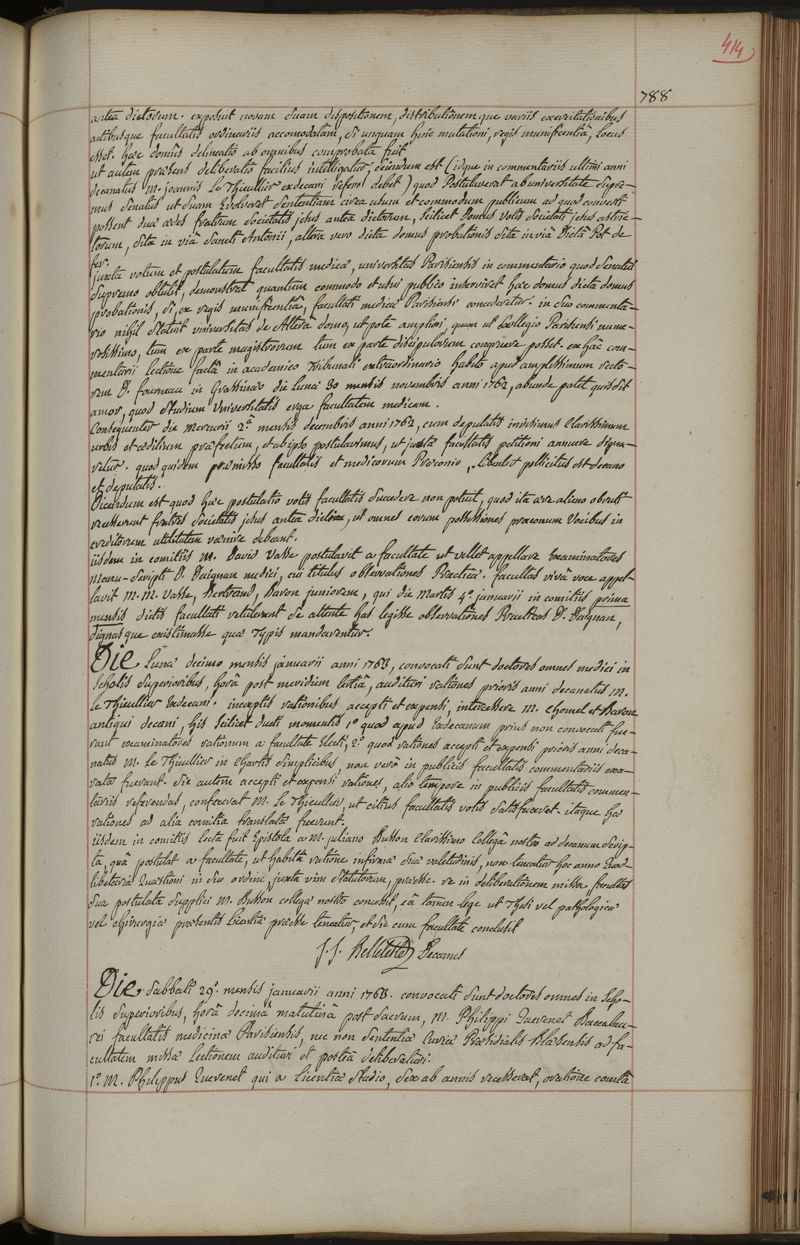 414
788
antea dictorum. exposuit novam suam dispositionem, distributionemque variis exercitationibus
actibusque facultatis ordinariis accomodatam, si unquam huic mutationi, regis munificentiâ, locus
esset. hæc domûs delineatio ab omnibus comprobata fuit
ut autem præsens deliberatio facilius intelligatur, sciendum est (idque in commentariis ultimi anni
decanatus M. joannis Le Thieullier exdecani referri debet) quod Postulaverat ab universitate supre-
mus senatus ut suam Evolveret sententiam circa usum et commodum publicum ad quod converti
possent duæ ædes fratrum societatis jesus antea dictorum, scilicet Domus votis societati jesus astric-
torum, sita in via sancti Antonii, altera vero dicta domus probationis sita in viâ Dictâ Pot de
fer.
juxta votum et postulatum facultatis medicæ, universitas Parisiensis in commentario quod senatui
supremo obtulit, demonstrat quantum commodo et usui publico inserviret hæc domus dicta domus
probationis, si, ex regis munificentiâ, facultati medicæ Parisiensi concederetur. in suo commenta-
rio nihil statuit universitas de Alterâ domo, utpote ampliori, quam ut Collegio Parisiensi nume-
rosissimo, tum ex parte magistrorum tum ex parte discipulorum congruere posset. ex hâc com-
mentarii lectione factâ in academico Tribunali extraordinario habito apud amplissimum recto-
rem D. fourneau in Grassinæo die lunæ 30 mensis novembris anni 1762, abunde patet quis sit
amor, quod studium Universitatis erga facultatem medicam.
Consequenter die mercurii 2.â mensis decembris anni 1762, cum deputatis invisimus Clarissimum
urbis et ædilium præfectum, et ab ipso postulavimus, ut justæ facultatis petitioni annuere digna-
retur. quod quidem præmisso facultatis et medicorum Præconio, Libenter pollicitus est decano
et deputatis.
Dicendum est quod hæc postulatio votis facultatis succedere non potuit, quod ita ære alieno obruti
recesserunt fratres societatis jesus antea dictæ, ut omnes eorum possessiones præconum Vocibus in
creditorum utilitatem vænire debeant.
iisdem in comitiis M. David Vasse postulavit a facultate ut vellet appellare Examinatores
Manu-scripti D. Daignan medici, cui titulus observationes Practicæ. facultas vivâ voce appel-
lavit M. M. Vasse, Bertrand, Baron juniorem, qui die martis 4.a januarii in comitiis prima
mensis dictis facultati retulerunt se attente has legisse observationes Practicas D. Daignan,
dignasque existimasse quæ Typis mandarentur.
Die Lunæ decimo mensis januarii anni 1763, convocati sunt doctores omnes medici in
scholis superioribus, horâ post meridiem tertiâ, audituri rationes prioris anni decanatus M.
le Thieullier Exdecani. inceptis rationibus accepti et expensi, intercessere M. Chomel et Baron
antiqui decani, his scilicet ducti momentis 1.o quod apud Exdecanum prius non convocati fue-
rant examinatores rationum a facultate Electi, 2.o quod rationes accepti et expensi prioris anni deca-
natus M. le Thieullier in chartis simplicibus, non verò in publicis facultatis commentariis exa-
ratæ fuerant. sic autem accepti et expensi rationes, alio tempore in publicis facultatis commen-
tariis referendas, conferebat M. Le Thieullier, ut citius facultatis votis satisfaceret. itaque hæ
rationes ad alia comitia translatæ fuerunt.
iisdem in comitiis lecta fuit Epistola a M. juliano Busson clarissimo Collegâ nostro ad decanum scrip-
ta, quâ postulat a facultate, ut habitâ ratione infirmæ suæ valetudinis, non teneatur hoc anno Quod-
libetariæ Quæstioni in suo ordine, juxta vim statutorum, præesse. re in deliberationem missa facultas
sua postulata supplici M. Busson collegæ nostro concessit, eâ tamen lege ut Thesi vel pathologicæ
vel chirurgicæ præsentis Licentiæ præesse teneatur, et sic cum facultate conclusit
J. J. Belleteste Decanus
Die sabbati 29.â mensis januarii anni 1763. convocati sunt doctores omnes in scho-
lis superioribus, horâ decimâ matutinâ post sacrum, M. Philippi Quevenet Baccalau-
rei facultatis medicinæ Parisiensis, nec non sententiæ Curiæ Præsidialis Blæsensis ad fa-
cultatem missæ Lectionem audituri et posteà deliberaturi.
1.o M. Philippus Quevenet qui a Licentiæ studio, sex ab annis recesserat, oratione comtâ